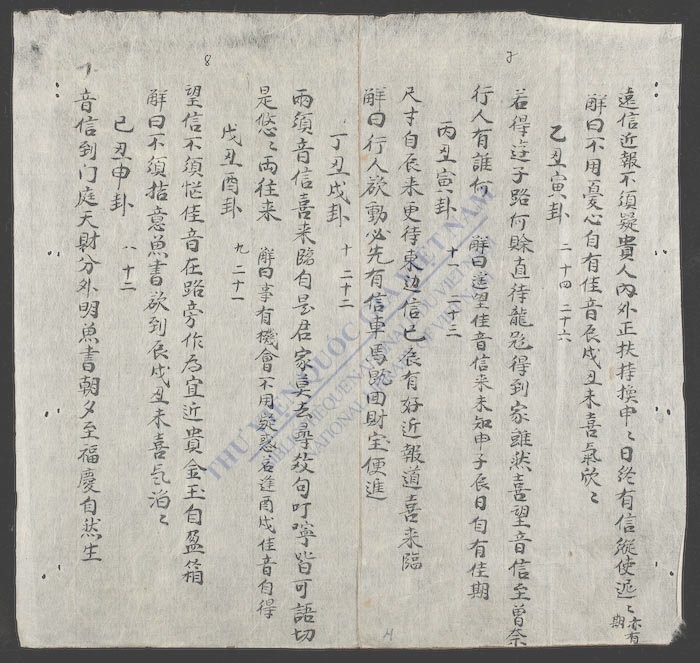 遠信近報不須疑貴人內外正扶持換申〻日終有信縱使遲〻亦有期
解曰不用憂心自有佳音辰戌丑未喜氣欣〻
乙丑寅卦 二十四 二十六
若得 子路何賒直待龍 得到家雖然喜望音信至曾奈
行人有誰何 解曰遙望佳音信来未知申子辰日自有佳期
丙丑寅卦 十八 二十三
尺寸自辰未更待東边信已辰有好近報道喜来臨
解曰行人欲動必先有信車馬 田財宝便進
丁丑戌卦 十 二十二
兩須音信喜来臨自是君家莫去尋 句叮嚀皆可語切
是悠〻両往来 解曰事有機會不用疑惑若逢酉戌佳音自得
戊丑酉卦 九 二十一
望信不須 佳音在路旁作為宜近貴金玉自盈箱
解曰不須掛意魚書欲到辰戌丑未喜氣洎〻
己丑申卦 八 十二
音信到门庭天財分外明魚書朝夕至福慶自然生
8
THƯ VIỆN QUỐC GIA VIỆT NAM
BIBLIOTHEQUE NATIONALE DU VIETNAM
NATIONAL LIBRARY OF VIETNAM